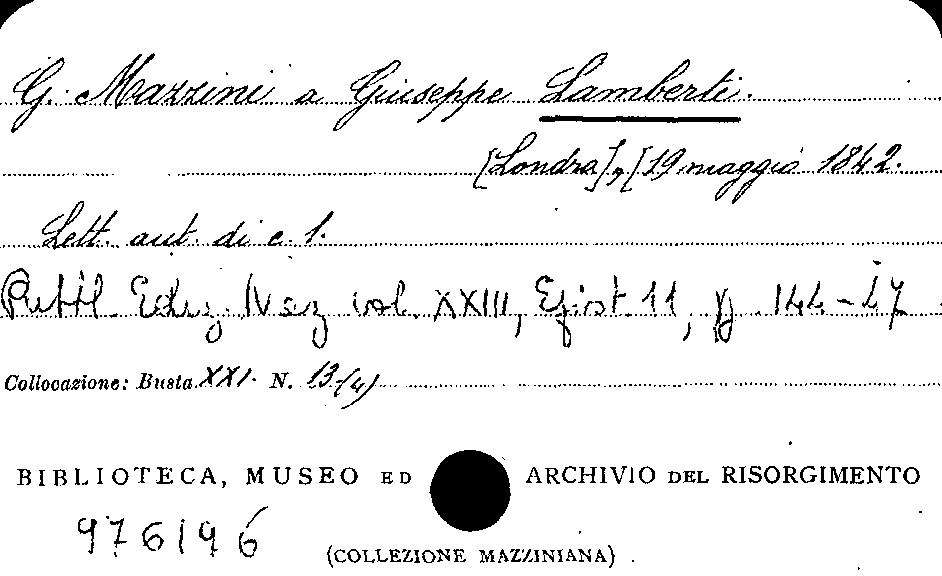 G. Mazzini a Giuseppe Lamberti.
[Londra], [19 maggio 1842.
Lett. aut. di c. 1.
Pubbl. Ediz. Naz. vol. XXIII, Epist. 11, p. 144-47
Collocazione: Busta XXI. N. 13-(4)
BIBLIOTECA, MUSEO ED ARCHIVIO DEL RISORGIMENTO
976196
(COLLEZIONE MAZZINIANA)